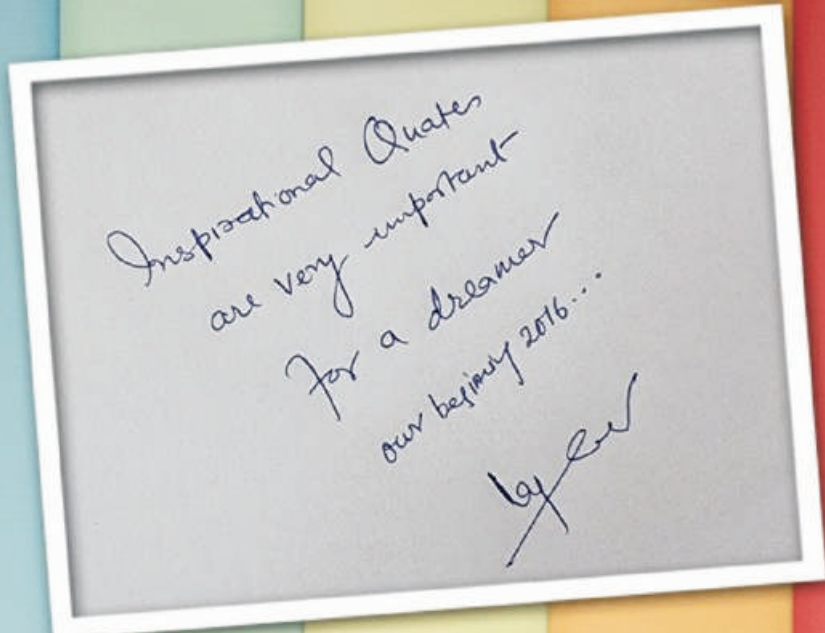 Inspirational Quates
are very important
For a dreamer
our begining 2016...